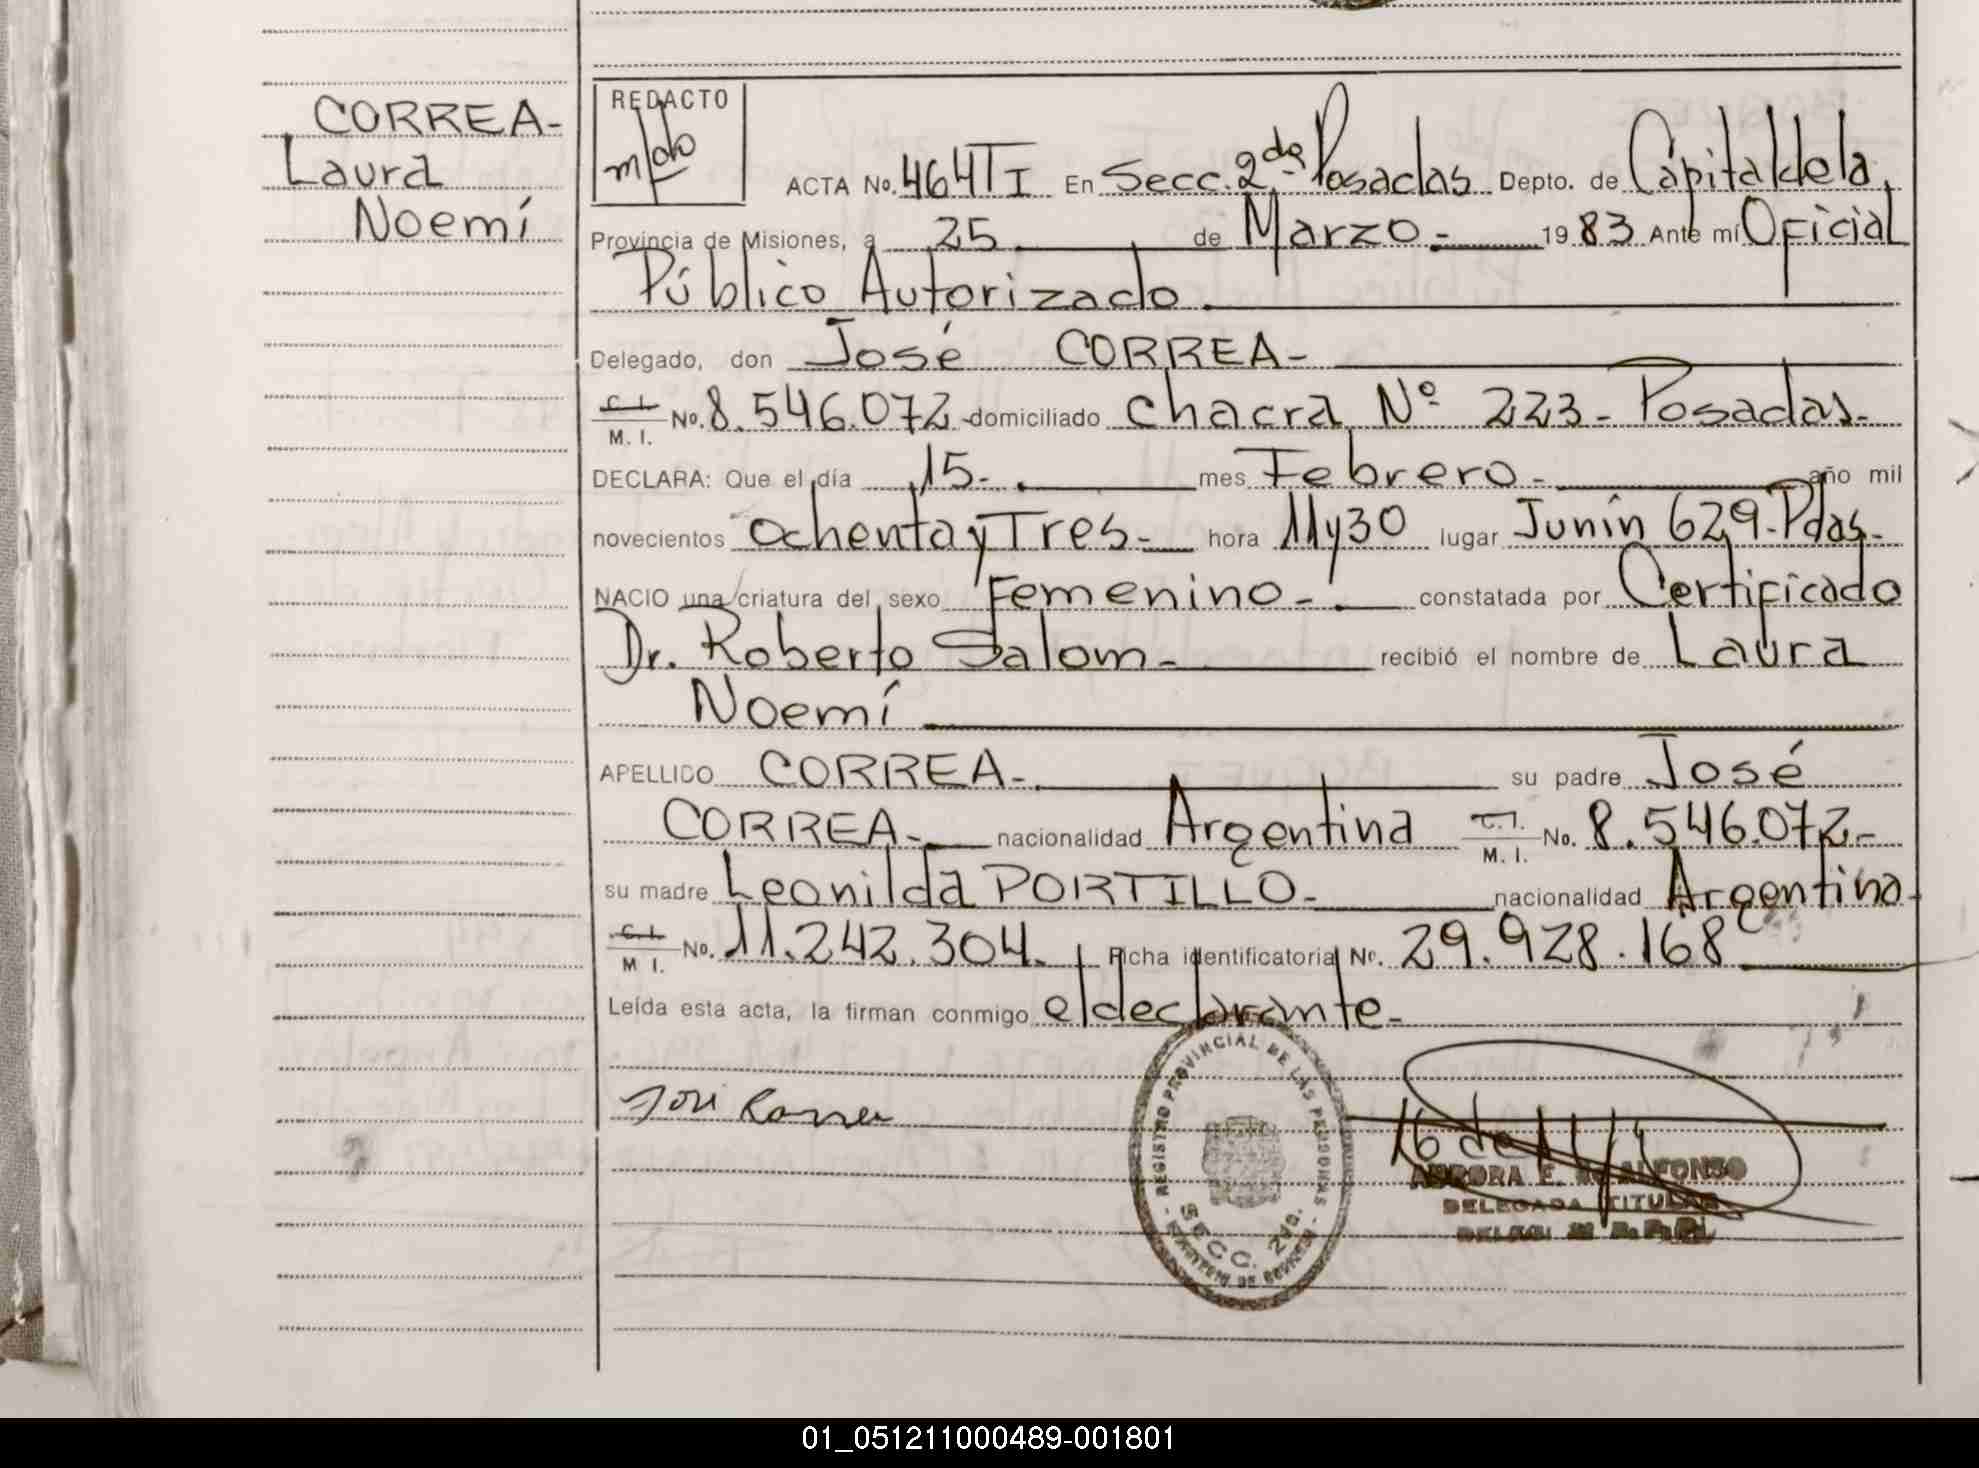 CORREA-
Laura
Noemí
REDACTO
ACTA No. 464TI En Secc. 2da. Posadas Depto. de Capital de la
Provincia de Misiones, a 25 de Marzo - 1983 Ante mí Oficial
Público Autorizado.
Delegado, don José CORREA-
C. I. M. I. No. 8.546.072 - domiciliado chacra Nº 223 - Posadas-
DECLARA: Que el día 15- mes Febrero- año mil
novecientos ochenta y Tres- hora 11y30 lugar Junín 629-Pdas-
NACIO una criatura del sexo Femenino- constatada por Certificado
Dr. Roberto Salom- recibió el nombre de Laura
Noemí
APELLIDO CORREA- su padre José
CORREA- nacionalidad Argentina C.I. M. I. No. 8.546.072-
su madre Leonilda PORTILLO- nacionalidad Argentina-
C. I. M I. No. 11.242.304. Ficha identificatoria No. 29.928.168
Leída esta acta, la firman conmigo el declarante-
José Correa
REGISTRO PROVINCIAL DE LAS PERSONAS
SECC. 2da.
AURORA E. ALFONSO
DELEGADA TITULAR
01_051211000489-001801